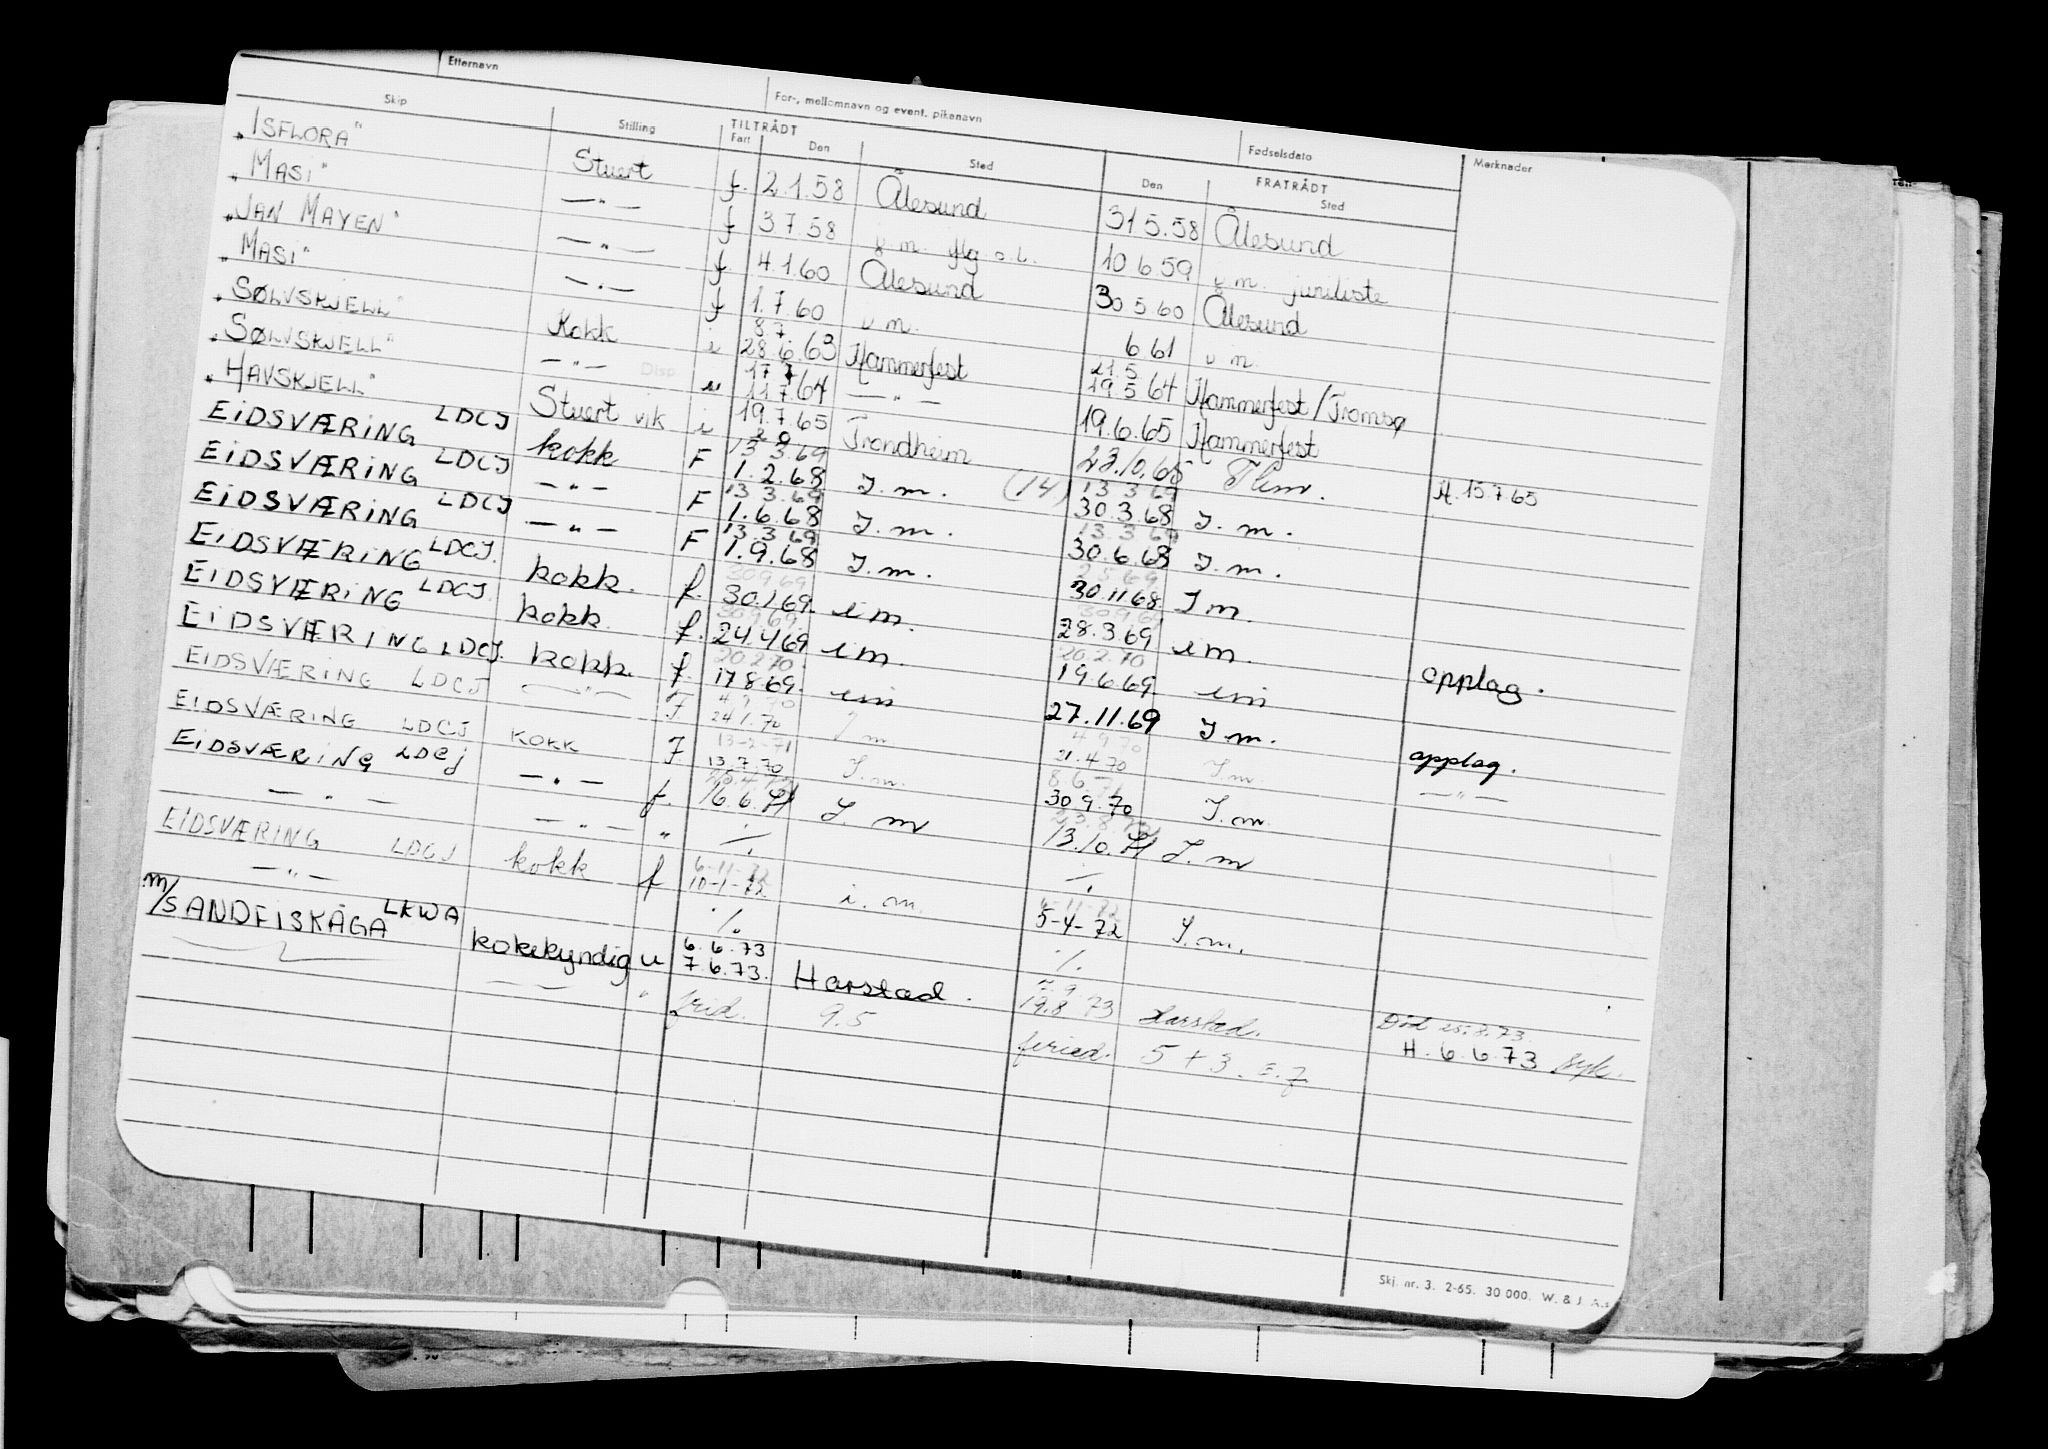 Etternavn For-, mellomnavn og event. pikenavn Fødselsdato Merknader
Skip Stilling TILTRÅDT Fart Den Sted FRATRÅDT Den Sted
"ISFLORA" Stuert f. 2.1.58 Ålesund 31 5.58 Ålesund
"MASI" —"— f 3 7.58 i m. flg o.l. 10 6.59 i m. juniliste
"JAN MAYEN" —"— f. 4.1.60 Ålesund 30 5 60 Ålesund
"MASI" —"— f 1.7.60 u m. 6 61 u m.
"SØLVSKJELL" Kokk i 8 7. 28.6.63 Hammerfest 21.5 19.5 64 Hammerfest/Tromsø
"SØLVSKJELL" —"— Disp u 17 7 11.7.64 —"— 19.6.65 Hammerfest
"HAVSKJELL" Stuert vik i 19.7.65 Trondheim 23.10.65 A. 15.7 65
EIDSVÆRING LDCJ kokk F 13 3.69 1.2.68 I. m. (14) 13 3 69 30.3.68 I. m.
EIDSVÆRING LDCJ —"— F 13 3.69 1.6.68 I. m. 13 3 69 30.6.68 I. m.
EIDSVÆRING LDCJ —"— F 13.3.69 1.9.68 I. m. 30.11 68 I m.
EIDSVÆRING LDCJ. kokk. f. 30 9 69 30.1.69. i m. 30 9 69 28.3.69 i m.
EIDSVÆRING LDCJ. kokk. f. 30 9 69. 24.4.69 i m. 20.2.70 19.6.69 i m opplag.
EIDSVÆRING LDCJ. kokk. f. 20 2 70 17.8.69. i m 27.11.69 I. m.
EIDSVÆRING LDCJ —"— F 4 9 70 24 1.70 I m. 4.9.70 21.4.70 I. m. opplag.
EIDSVÆRING LDCJ KOKK F 13-2-71 13.7.70 I. m. 30 9.70 I. m. —"—
EIDSVÆRING LDCJ —"— f. 16.6.71 I. m 13.10.71 I. m
—"— —"— " ./. ./.
EIDSVÆRING LDCJ kokk f 6-11-72 10-1-72 i. m. 6-11-72 5-4-72 I. m.
—"— ./. ./.
m/S ANDFISKÅGA LKWA kokekyndig u 6.6.73 7 6.73. Harstad. 19.8 73 Harstad. Død 73.
" frid. 9.5 feried. 5 + 3. H. 6.6.73 syk.
Skj. nr. 3. 2-65. 30 000. W. & J. A.s